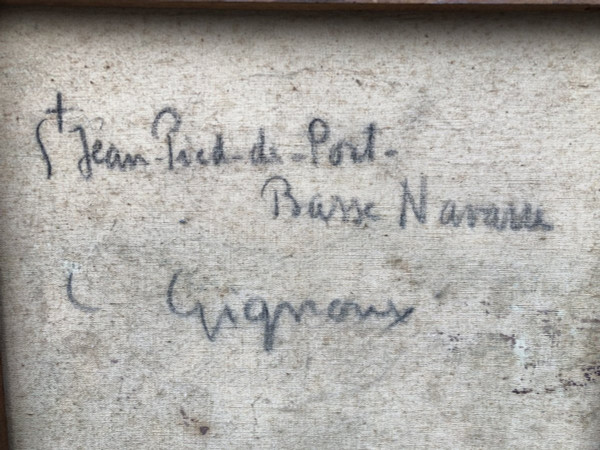 St Jean-Pied-de-Port-
Basse Navarre
C Gignoux